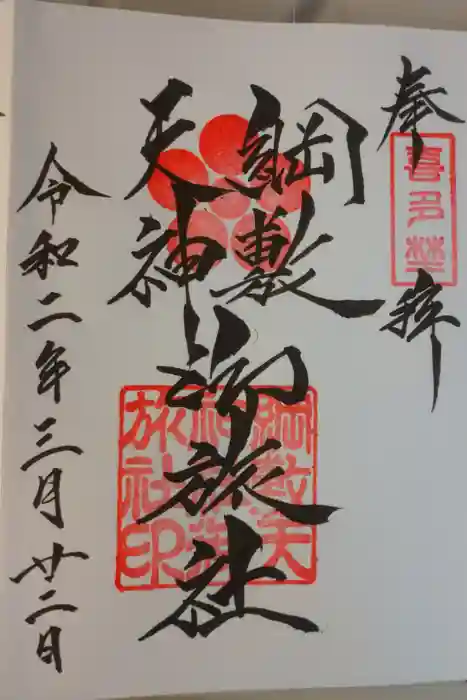 奉拝
喜多埜
綱敷
天神
御旅社
綱敷天
神御
旅社印
令和二年三月廿二日